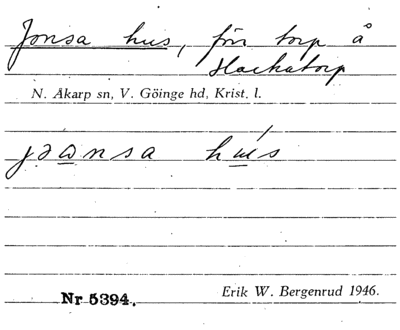 Jonsa hus, förr torp å
Hackatorp
N. Åkarp sn, V. Göinge hd, Krist. l.
jəω̲nsa hu̲s
Nr 5394.
Erik W. Bergenrud 1946.